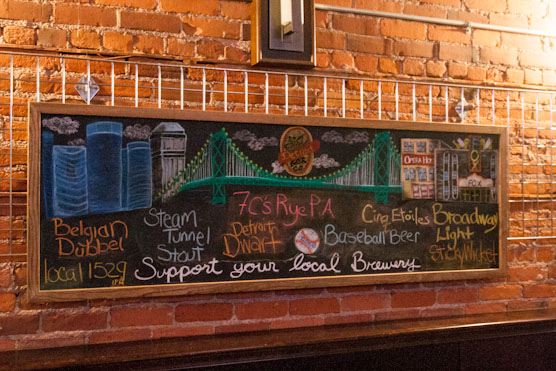 OPERA HO
FOX
7C's Rye PA
Cinq Etoiles
Broadway
Light
Belgian
Dubbel
Steam
Tunnel
Stout
Detroit
Dwarf
Baseball Beer
local 1529
IPA
Support your local Brewery